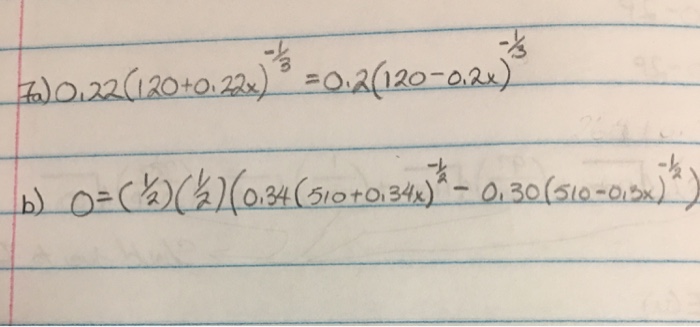 7a) 0.22(120+0.22x)^-1/3 = 0.2(120-0.2x)^-1/3
b) 0=(1/2)(1/2)(0.34(510+0.34x)^-1/2 - 0.30(510-0.3x)^-1/2)